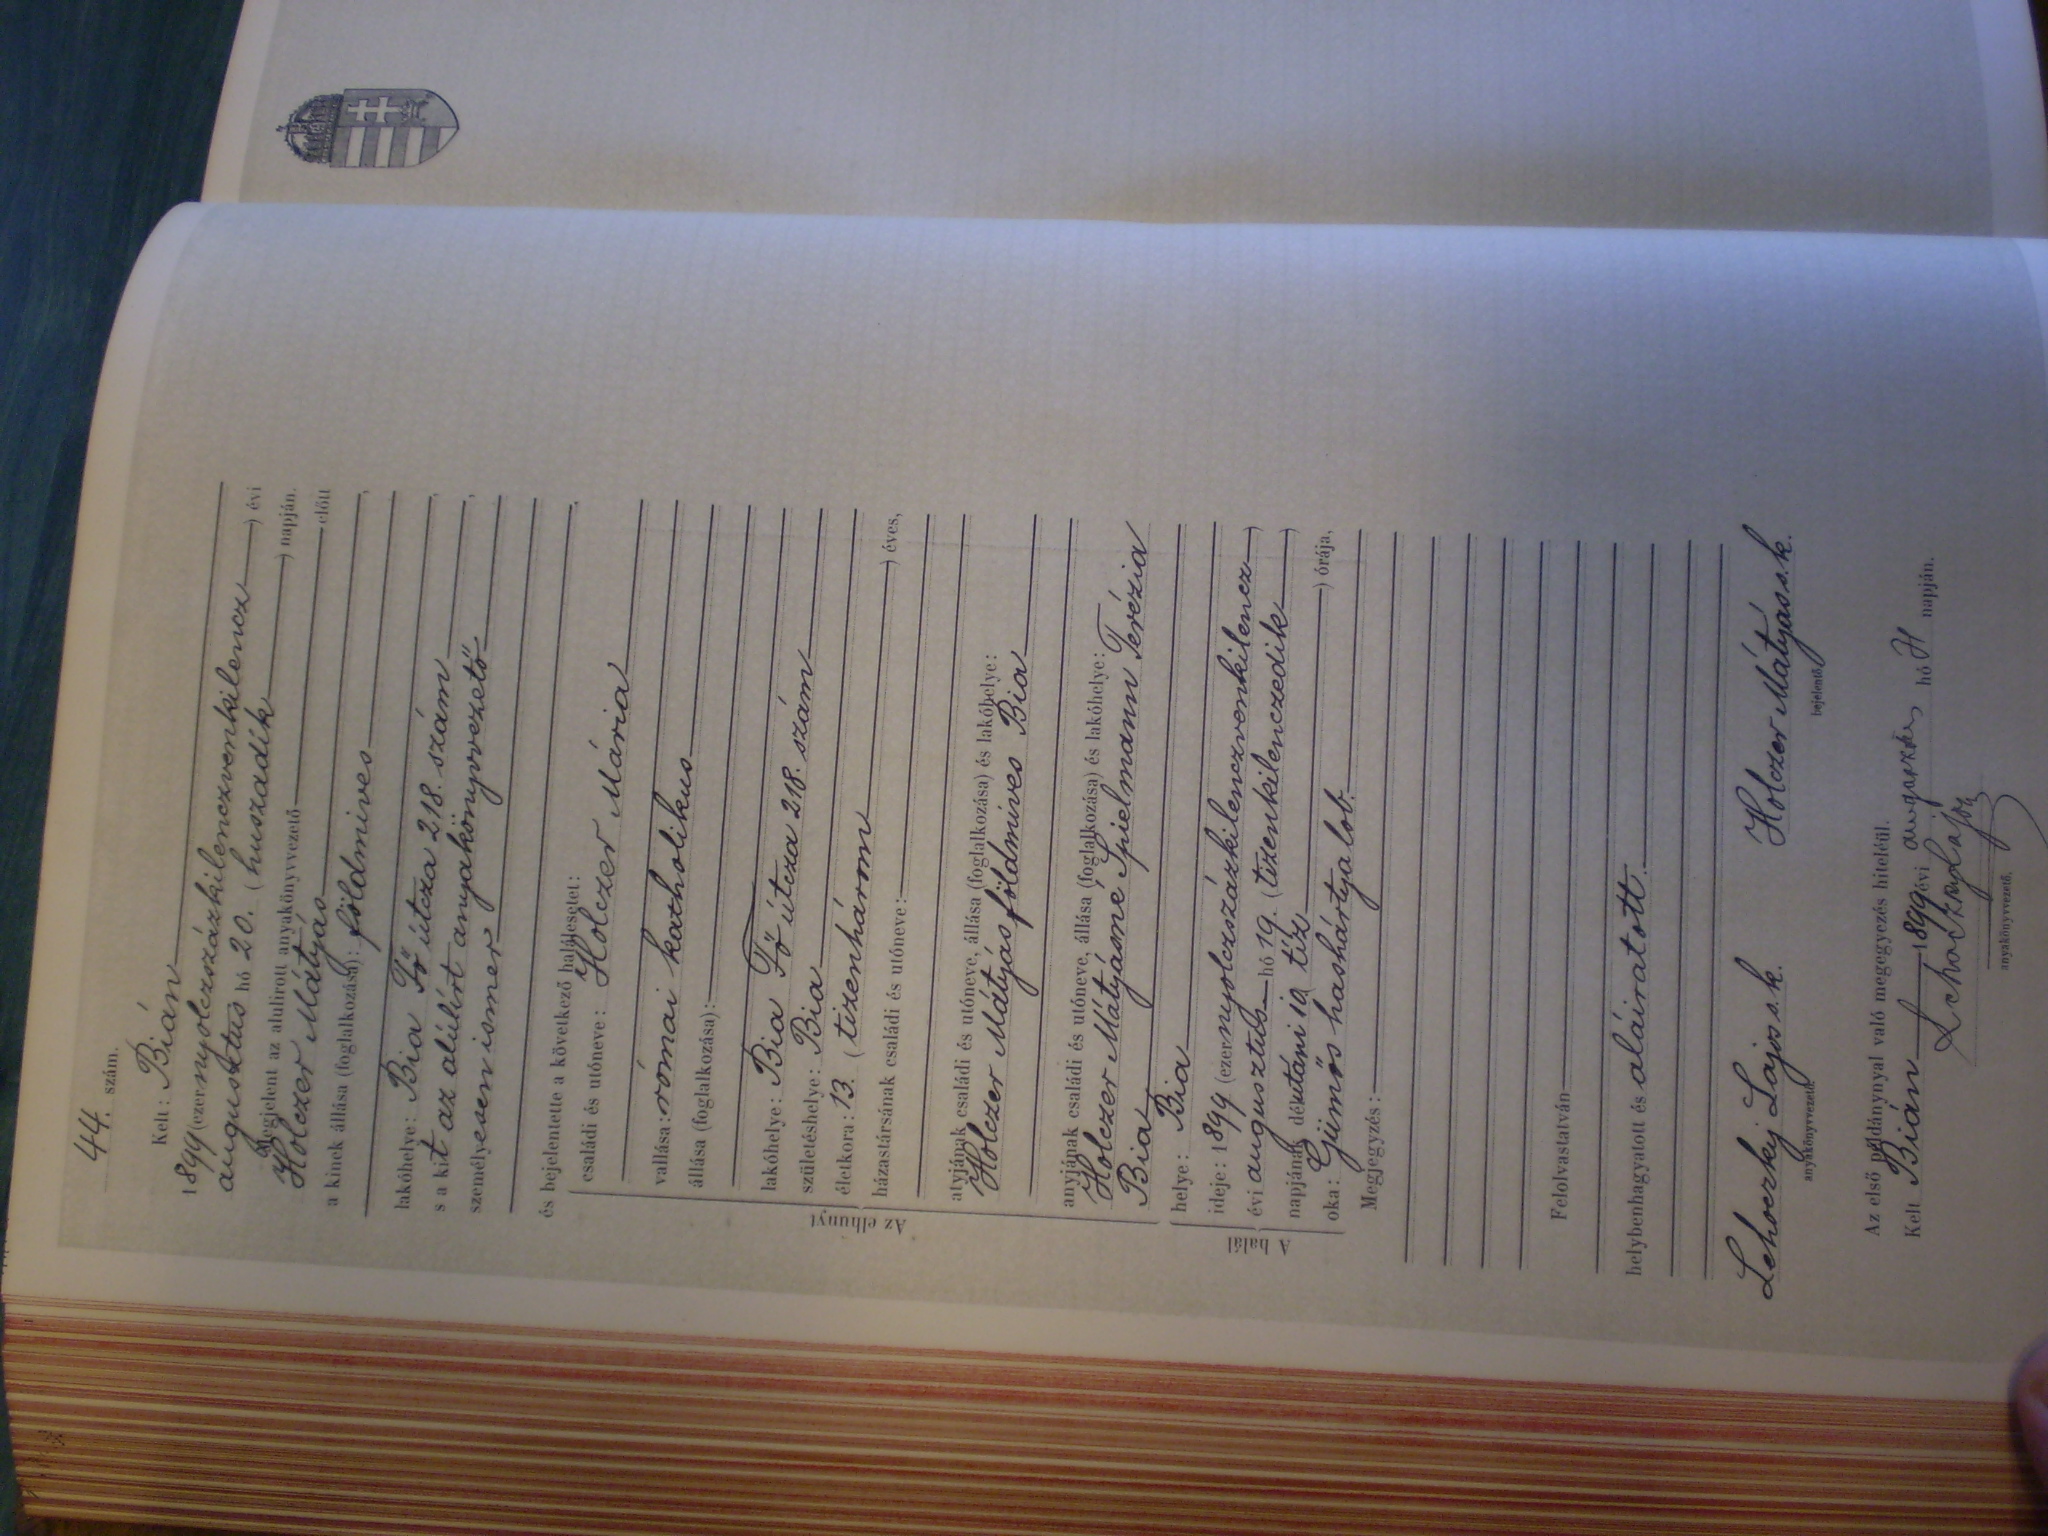 44. szám.
Kelt: Bián
1899 (ezernyolczszázkilenczvenkilencz) évi
augusztus hó 20. (huszadik) napján.
Megjelent az alulirott anyakönyvvezető előtt
Holczer Mátyás
a kinek állása (foglalkozása): földmives,
lakóhelye: Bia Fő útcza 218. szám,
s a kit az alúlírt anyakönyvvezető
személyesen ismer,
és bejelentette a következő halálesetet:
Az elhunyt
családi és utóneve: Holczer Mária
vallása: római katholikus
állása (foglalkozása):
lakóhelye: Bia Fő útcza 218. szám
születéshelye: Bia
életkora: 13. (tizenhárom) éves,
házastársának családi és utóneve:
atyjának családi és utóneve, állása (foglalkozása) és lakóhelye:
Holczer Mátyás földmives Bia
anyjának családi és utóneve, állása (foglalkozása) és lakóhelye:
Holczer Mátyásné Spielmann Terézia
Bia
A halál
helye: Bia
ideje: 1899 (ezernyolczszázkilenczvenkilencz)
évi augusztus hó 19. (tizenkilenczedik)
napjának délutáni 10 tíz) órája,
oka: Gümős hashártyalob.
Megjegyzés:
Felolvastatván
helybenhagyatott és aláiratott.
Lehoczky Lajos s. k. Holczer Mátyás s. k.
anyakönyvvezető. bejelentő.
Az első példánnyal való megegyezés hiteléül.
Kelt Bián 1899 évi augusztus hó napján.
Lehoczky Lajos
anyakönyvvezető.